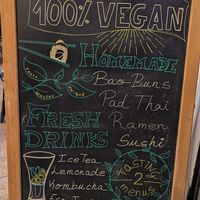 100% VEGAN
HOMEMADE
TASTY
HEALTHY
Bao-Buns
Pad Thai
FRESH
DRINKS
Ramen
Sushi
Ice Tea
Lemonade
Kombucha
TASTING
2
menus